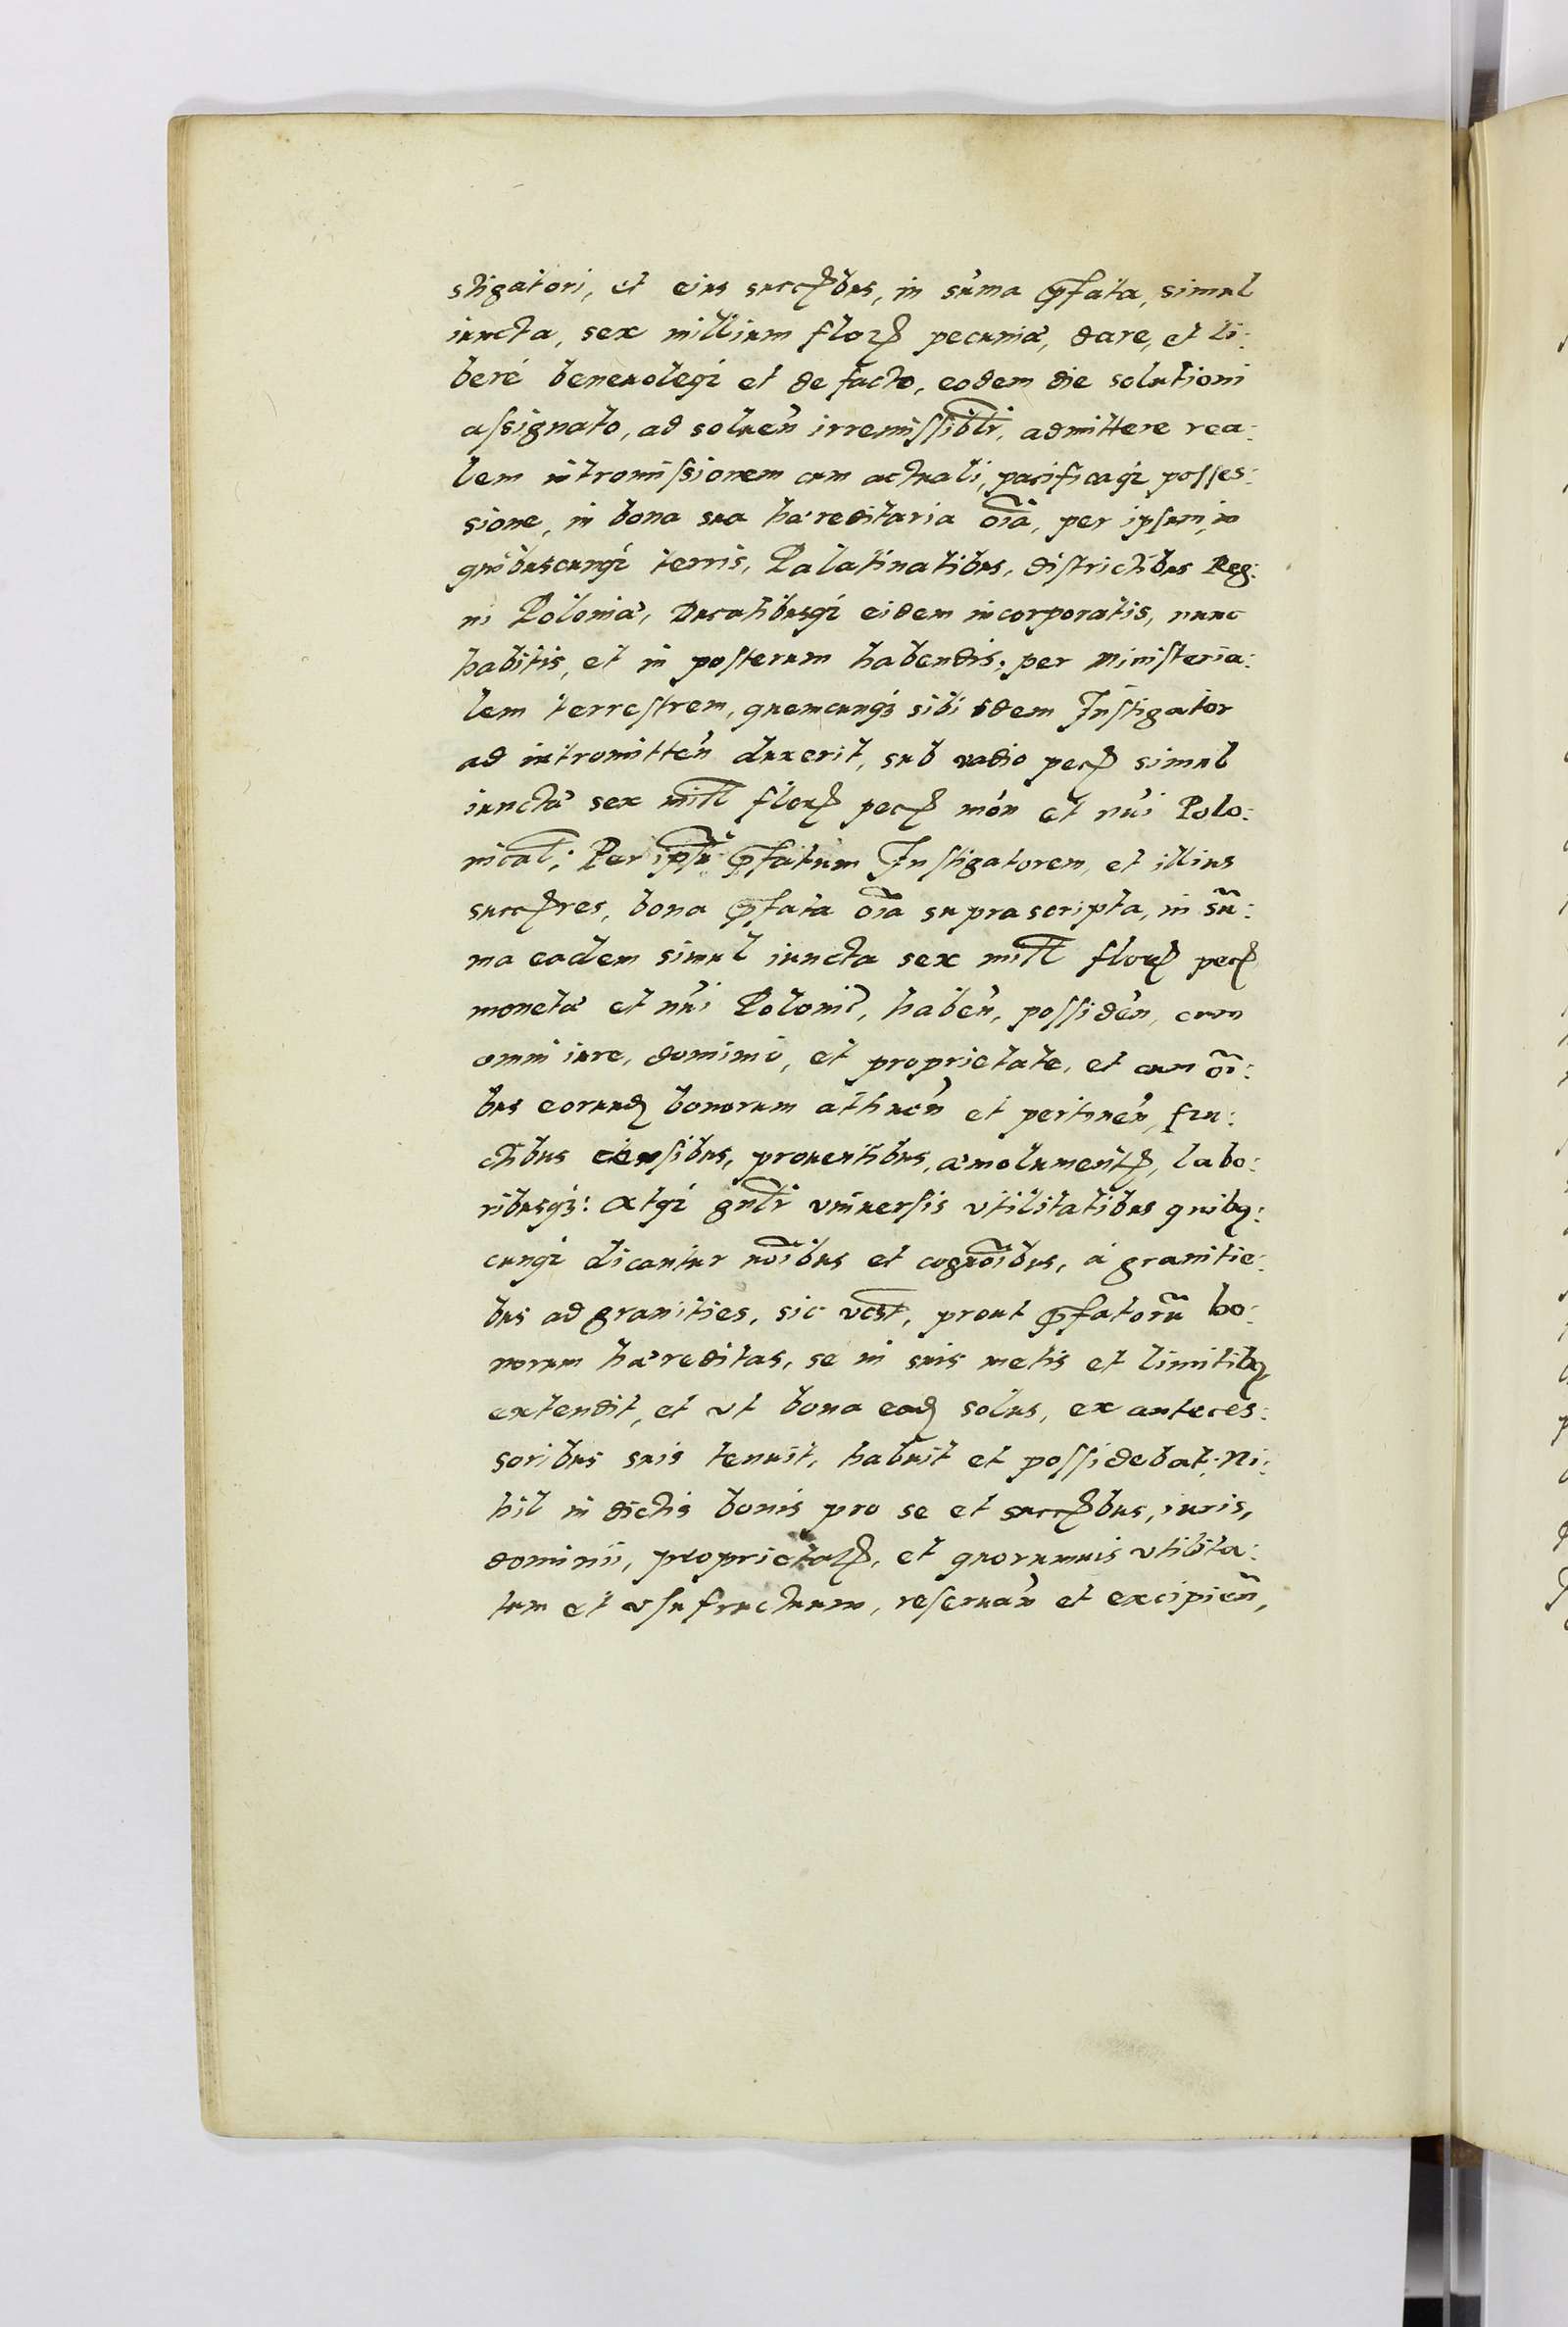 stigatori, et eius succꝭbus, in sũma p̱fata, simul
iuncta, sex millium floꝝ pecuniæ, dare, et li:
berè beneuoleqȝ et de facto, eodem die solutioni
aſsignato, ad soluen̄ irremiſſibl̃r, admittere rea:
lem intromiſsionem cum actuali, pacificaqȝ poſses:
sione, in bona sua hæreditaria oĩa, per ipſum, in
quibuscunqȝ terris, Palatinatibus, diſtrictibus Reg:
ni Poloniæ, Ducatibusqȝ eidem incorporatis, nunc
habitis, et in poſterum habendis; per Miniſteria:
lem terreſtrem, quemcunqȝ sibi idem Inſtigator
ad intromitten̄ duxerit, sub vadio pecꝭ simul
iunctæ sex mill̃ florꝭ pecꝭ mon̄ et nr̃i Polo:
nical̃; Per ipſũ p̱fatum Inſtigatorem, et illius
succꝭres, bona p̱fata oĩa suprascripta, in sũ:
ma eadem simul iuncta sex mill̃ florꝭ pecꝭ
monetæ et nr̃i Polonic̃, haben̄, poſſiden̄, cum
omni iure, dominio, et proprietate, et cum oĩ:
bus eorundꝭ bonorum attinen̄ et pertinen̄, fru:
ctibus cenſibus, prouentibus, æmolumentꝭ, labo:
ribusqȝ: atqȝ gnl̃r vniuerſis vtilitatibus quibꝰ:
cunqȝ dicantur nõibus et cognõibus, à granitie:
bus ad granities, sic vt̃ est, prout p̱fatorũ bo:
norum hæreditas, se in suis metis et limitibꝰ
extendit, et vt bona eadꝭ solus, ex anteces:
soribus suis tenuit, habuit et poſſidebat; Ni:
hil in dictis bonis pro se et succꝭbus, iuris,
dominii, proprietatꝭ, et quorumuis vtilita:
tum et vſufructuum, reſeruan̄ et excipien̄,